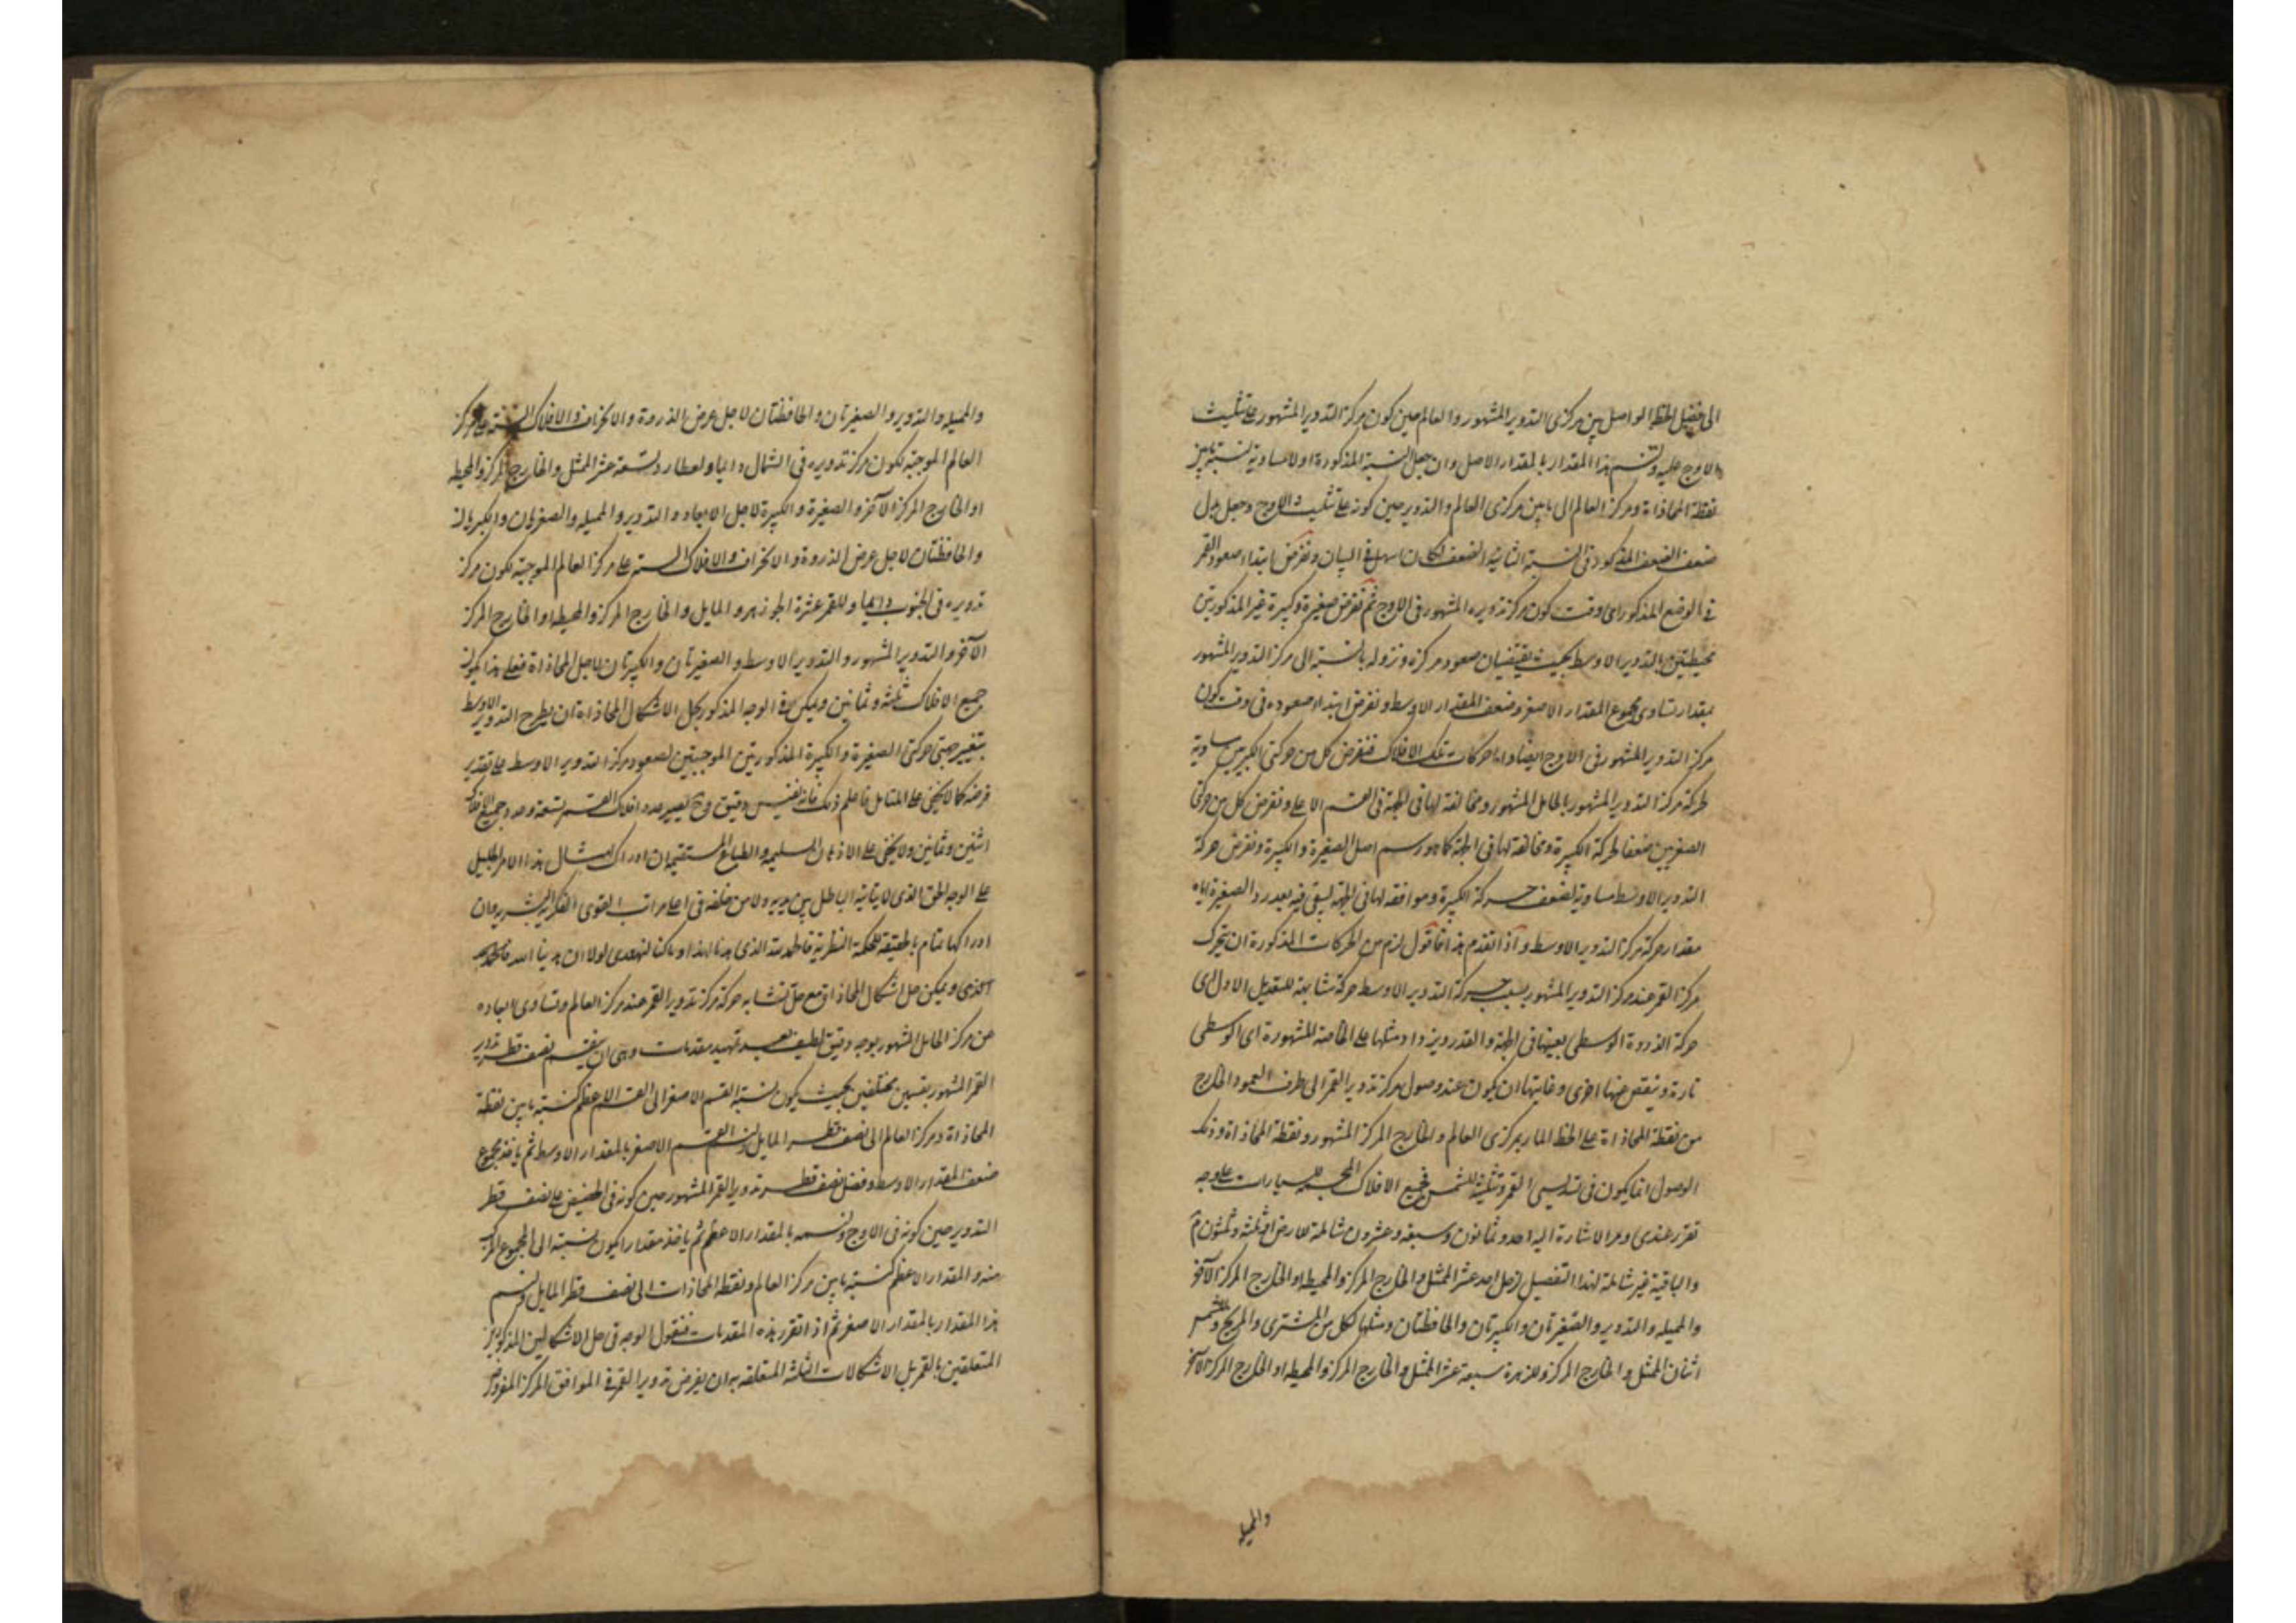 الى فضل الخط الواصل بين مركزى التدوير المشهور والعالم حين كون مركز التدوير المشهور على تثليث
الاوج عليه ولنسم هذا المقدار بالمقدار الاصل وان جعل النسبة المذكورة اولا مساوية لنسبة ما بين
نقطة المحاذاة ومركز العالم الى ما بين مركزى العالم والتدوير حين كونه على تثليث الاوج وجعل بدل
ضعف الضعف المذكور فى النسبة الثانية الضعف لكان اسهل فى البيان ونفرض ابتداء صعود القمر
فى الوضع المذكور اى وقت كون مركز تدويره المشهور فى الاوج ثم نفرض صغيرة وكبيرة غير المذكورتين
محيطتين بالتدوير الاوسط بحيث يقتضيان صعود مركزه ونزوله بالنسبة الى مركز التدوير المشهور
بمقدار تساوى مجموع المقدار الاصغر وضعف المقدار الاوسط ونفرض ابتداء صعوده فى وقت كون
مركز التدوير المشهور فى الاوج ايضا واما حركات تلك الافلاك فنفرض كل من حركتى الكبريين مساوية
لحركة مركز التدوير المشهور بالحامل المشهور ومخالفة لها فى الجهة فى القسم الاعلى ونفرض كل من حركتى
الصغريين ضعفا لحركة الكبيرة ومخالفة لها فى الجهة كما هو رسم اصل الصغيرة والكبيرة ونفرض حركة
التدوير الاوسط مساوية لضعف حركة الكبيرة وموافقة لها فى الجهة ليبقى فيه بعد رد الصغيرة اياه
مقدار حركة مركز التدوير الاوسط واذا تقدم هذا فاقول لزم من الحركات المذكورة ان يتحرك
مركز القمر عند مركز التدوير المشهور بسبب حركة التدوير الاوسط حركة مشابهة للتعديل الاول اى
حركة الذروة الوسطى بعينها فى الجهة والقدر ويزداد مثلها على الخاصة المشهورة اى الوسطى
تارة وينقص منها اخرى وغايتها ان يكون عند وصول مركز تدوير القمر الى طرف العمود الخارج
من نقطة المحاذاة على الخط المار بمركزى العالم والخارج المركز المشهور ونقطة المحاذاة وذلك
الوصول انما يكون فى تسديس القمر وتثليثه للشمس فجميع الافلاك المجسمة للسيارات على وجه
تقرر عندى ومر الاشارة اليه احد وثمانون وسبعة وعشرون شاملة للارض
والباقية غير شاملة لهذا التفصيل لزحل احد عشر الممثل والخارج المركز والمحيطه او الخارج المركز الآخر
والمميله والتدوير والصغيرتان والكبيرتان والحافظتان ومثلها لكل من المشترى والمريخ وللشمس
اثنان الممثل والخارج المركز وللزهرة سبعة عشر الممثل والخارج المركز والمحيطه او الخارج المركز الآخر
والمميله
والمميله والتدوير والصغيرتان والحافظتان لاجل عرض الذروة والانحراف والافلاك الستة على مركز
العالم الموجبة لكون مركز تدويره فى الشمال دايما ولعطارد تسعة عشر الممثل والخارج المركز والمحيطه
او الخارج المركز الآخر والصغيرة والكبيرة لاجل الابعاد والتدوير والمميله والصغريان والكبريان
والحافظتان لاجل عرض الذروة والانحراف والافلاك الستة على مركز العالم الموجبة لكون مركز
تدويره فى الجنوب دايما وللقمر عشرة الجوزهر والمايل والخارج المركز والمحيطه او الخارج المركز
الآخر والتدوير المشهور والتدوير الاوسط والصغيرتان والكبيرتان لاجل المحاذاة فعلى هذا يكون
جميع الافلاك ثلثة وثمانين ويمكن فى الوجه المذكور لحل الاشكال المحاذاة ان يطرح التدوير الاوسط
بتغيير جهتى حركتى الصغيرة والكبيرة المذكورتين الموجبتين لصعود مركز التدوير الاوسط على تقدير
فرضه كما لا يخفى على المتامل فاعلم ذلك فانه نفيس دقيق وح يصير عدد افلاك القمر تسعة وعدد جميع الافلاك
اثنين وثمانين ولا يخفى على الاذهان السليمة والطباع المستقيمة ان ادراك امثال هذا الامر الجليل
على الوجه الحق الذى لا ياتيه الباطل من بين يديه ولا من خلفه فى اعلى مراتب القوى الفكرية البشرية وان
ادراكها تمام بالحقيقة للحكمة النظرية فالحمد لله الذى هدانا لهذا وما كنا لنهتدى لولا ان هدينا الله
اخرى ويمكن حل اشكال المحاذاة مع حل تشابه حركة مركز تدوير القمر عند مركز العالم وتساوى ابعاده
من مركز الحامل المشهور بوجه دقيق لطيف بعد تمهيد مقدمات وهى ان ينقسم نصف قطر تدوير
القمر المشهور بقسمين مختلفين بحيث يكون نسبة القسم الاصغر الى القسم الاعظم كنسبة ما بين نقطة
المحاذاة ومركز العالم الى نصف قطر المايل ولنسم القسم الاصغر بالمقدار الاوسط ثم ياخذ مجموع
ضعف المقدار الاوسط وفضل نصف قطر تدوير القمر المشهور حين كونه فى الحضيض على نصف قطر
التدوير حين كونه فى الاوج ونسمه بالمقدار الاعظم ثم ياخذ مقدارا يكون نسبته الى المجموع المركب
منه والمقدار الاعظم كنسبة ما بين مركز العالم ونقطة المحاذات الى نصف قطر المايل ولنسم
هذا المقدار بالمقدار الاصغر ثم اذا تقرر هذه المقدمات فنقول الوجه فى حل الاشكالين المذكورين
المتعلقين بالقمر بل الاشكالات الثلثة المتعلقه به ان يفرض تدوير القمر فى الموافق المركز المفروز